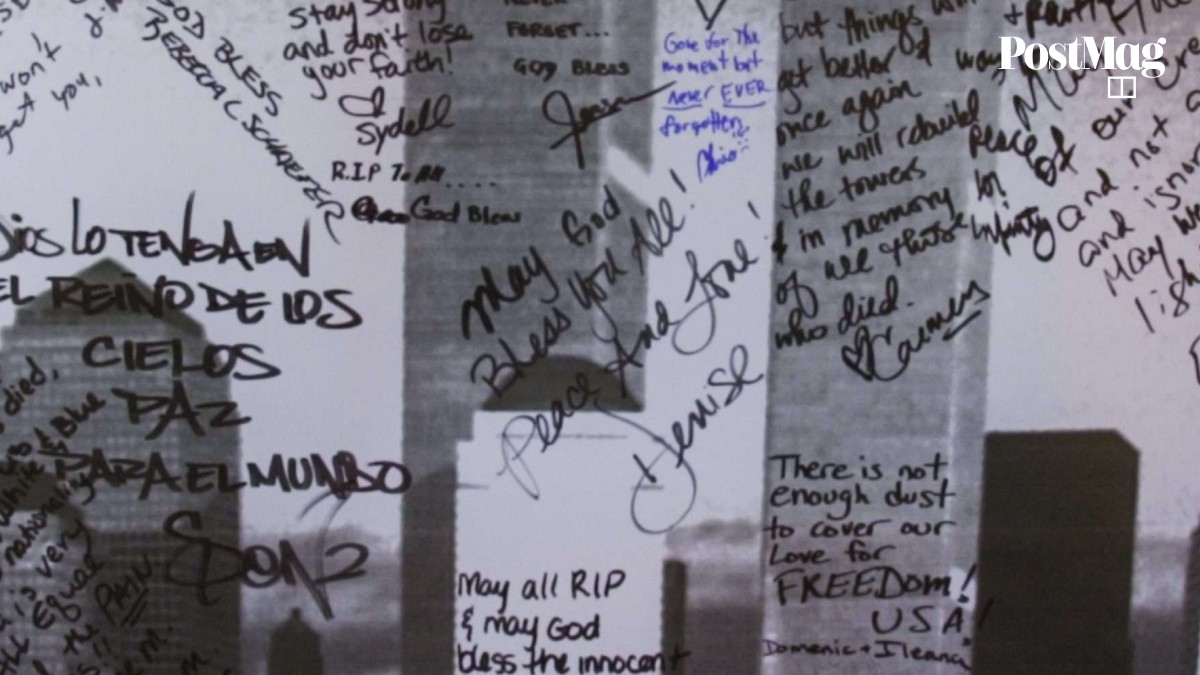 won't
get you,
GOD BLESS
REBECCA C SCHAEFER
stay strong
and don't lose
your faith!
Sydell
R.I.P To All.....
God Bless
FORGET...
GOD BLESS
Gone for the
moment but
never EVER
forgotten
but things will
get better &
once again
we will rebuild
the towers
& in memory
of all those
who died.
Carmen
PostMag
Peace
of our
Infinity and not
and ignor
May
Dios LO TENGA EN
EL REINO DE LOS
CIELOS
PAZ
PARA EL MUNDO
died,
& Blue
white
nationality
is very
Equal
the PAIN.
May God
Bless You All!
Peace And Love!
Denise
May all RIP
& may God
bless the innocent
There is not
enough dust
to cover our
Love for
FREEDOM!
USA!
Domenic + Ileana